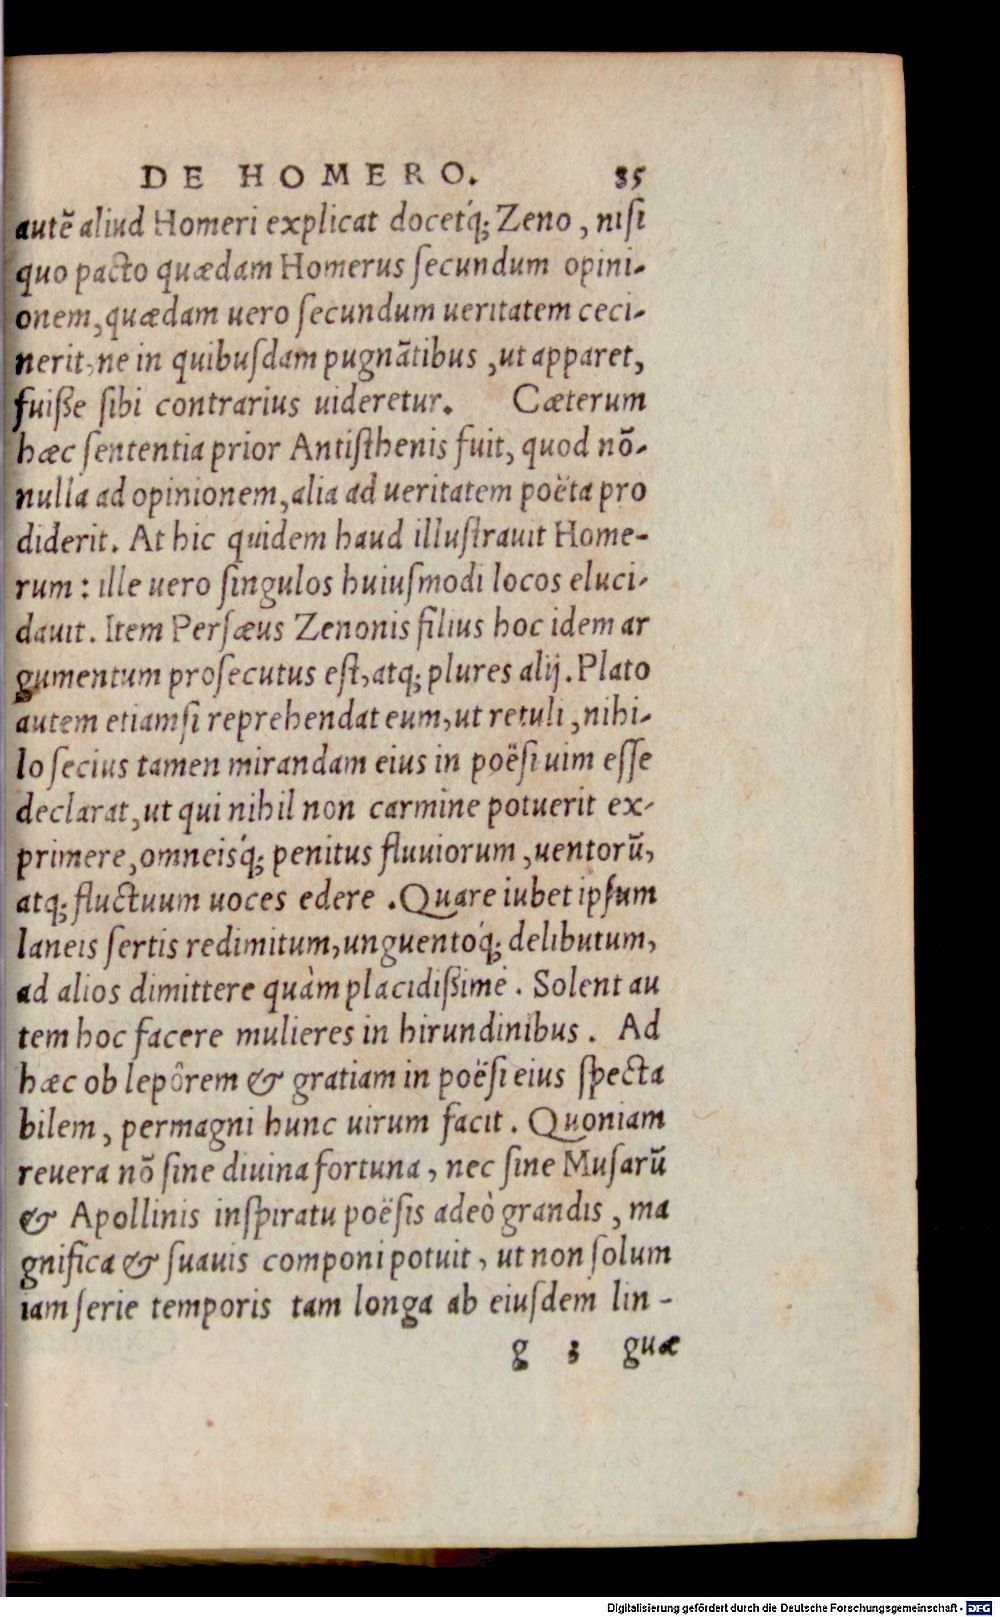 DE HOMERO. 85
autẽ aliud Homeri explicat docetq́; Zeno, nisi
quo pacto quædam Homerus ſecundum opini-
onem, quædam uero ſecundum ueritatem ceci-
nerit, ne in quibuſdam pugnãtibus, ut apparet,
fuiſſe ſibi contrarius uideretur. Cæterum
hæc ſententia prior Antiſthenis fuit, quod nõ-
nulla ad opinionem, alia ad ueritatem poëta pro
diderit. At hic quidem haud illuſtrauit Home-
rum: ille uero ſingulos huiuſmodi locos eluci-
dauit. Item Perſæus Zenonis filius hoc idem ar
gumentum proſecutus eſt, atq; plures alij. Plato
autem etiamſi reprehendat eum, ut retuli, nihi-
lo ſecius tamen mirandam eius in poëſi uim eſſe
declarat, ut qui nihil non carmine potuerit ex-
primere, omneisq́; penitus fluuiorum, uentorũ,
atq; fluctuum uoces edere. Quare iubet ipſum
laneis ſertis redimitum, unguentoq́; delibutum,
ad alios dimittere quàm placidiſſimè. Solent au
tem hoc facere mulieres in hirundinibus. Ad
hæc ob lepôrem & gratiam in poëſi eius ſpecta
bilem, permagni hunc uirum facit. Quoniam
reuera nõ ſine diuina fortuna, nec ſine Muſarũ
& Apollinis inſpiratu poëſis adeò grandis, ma
gnifica & ſuauis componi potuit, ut non ſolum
iam ſerie temporis tam longa ab eiuſdem lin-
g 3 guæ
Digitalisierung gefördert durch die Deutsche Forschungsgemeinschaft - DFG